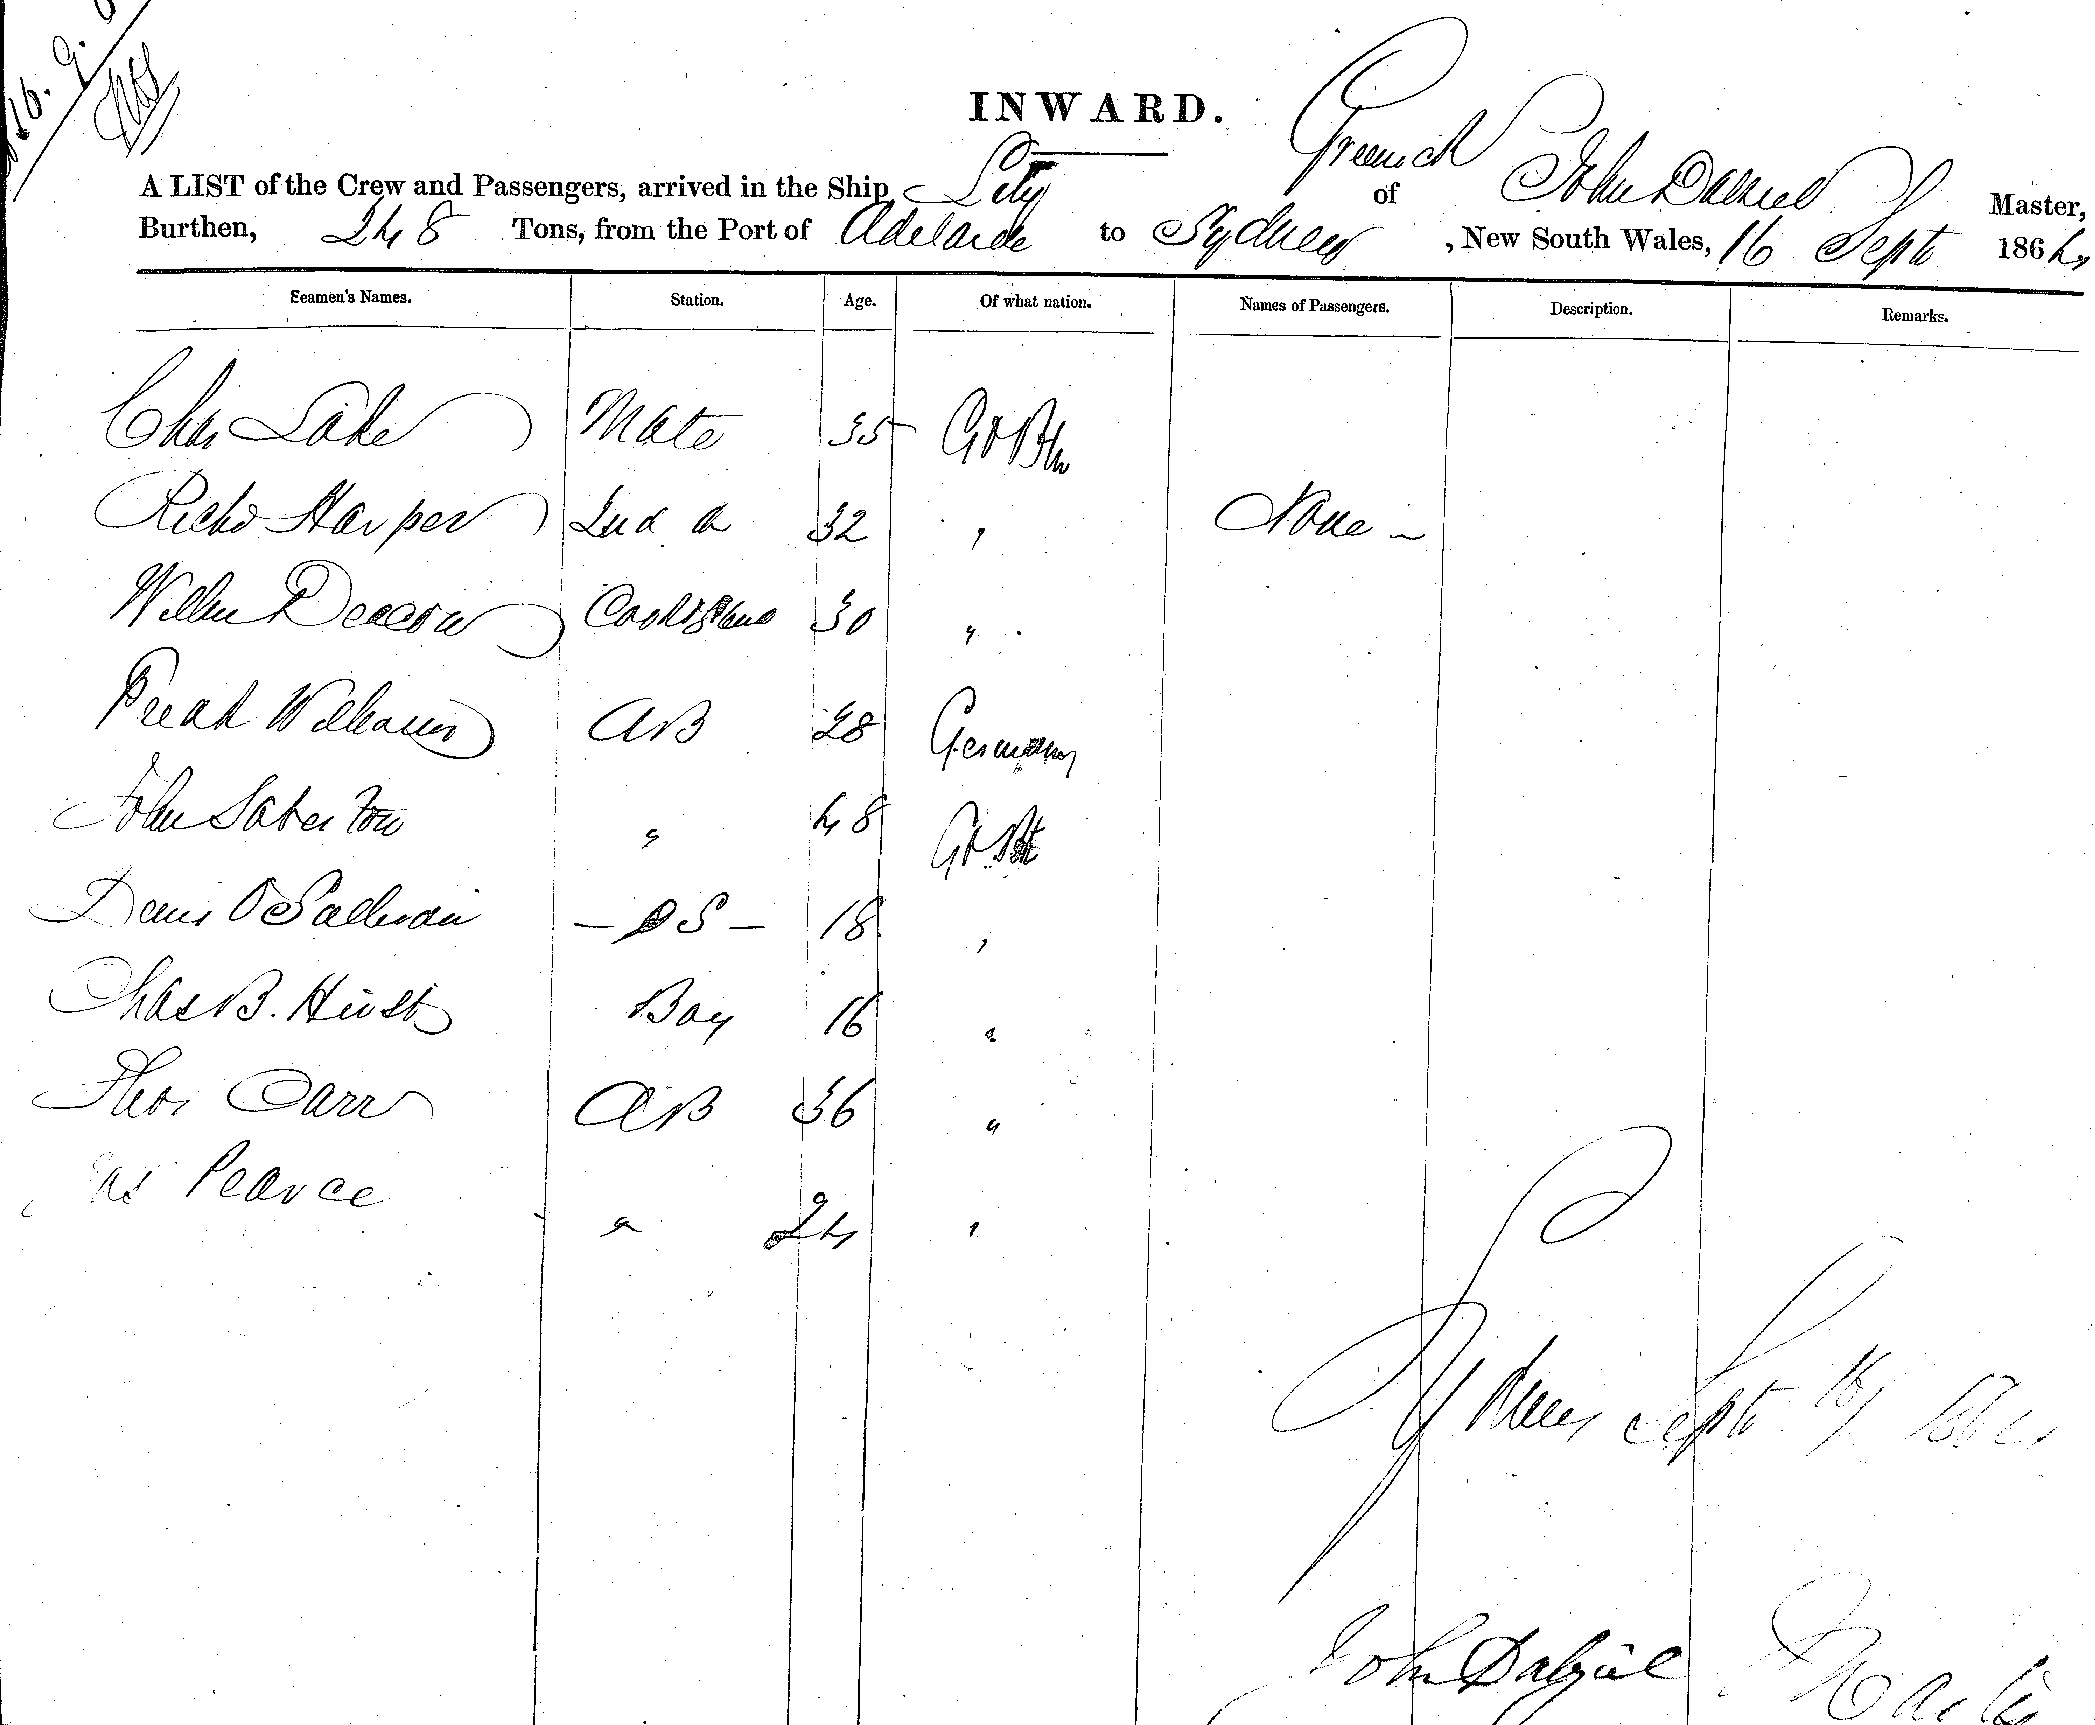 16. 9.
INWARD.
A LIST of the Crew and Passengers, arrived in the Ship, City Greenock of John Dalziel Master,
Burthen, 248 Tons, from the Port of Adelaide to Sydney, New South Wales, 16 Sept 1864
Seamen's Names. Station. Age. Of what nation. Names of Passengers. Description. Remarks.
Chas Lake Mate 35 Gt Btn
Richd Harper 2nd Do 32 " None
Willm Deacon Cook & Stewd 30 "
Fredk Williams AB 28 Germany
John Saberton " 48 Gt Bt
Denis O Sullivan OS 18 "
Chas B. Hirst Boy 16 "
Thos Carr AB 36 "
Pearce " 24 "
Sydney Sept 16/ 1864
John Dalziel Master